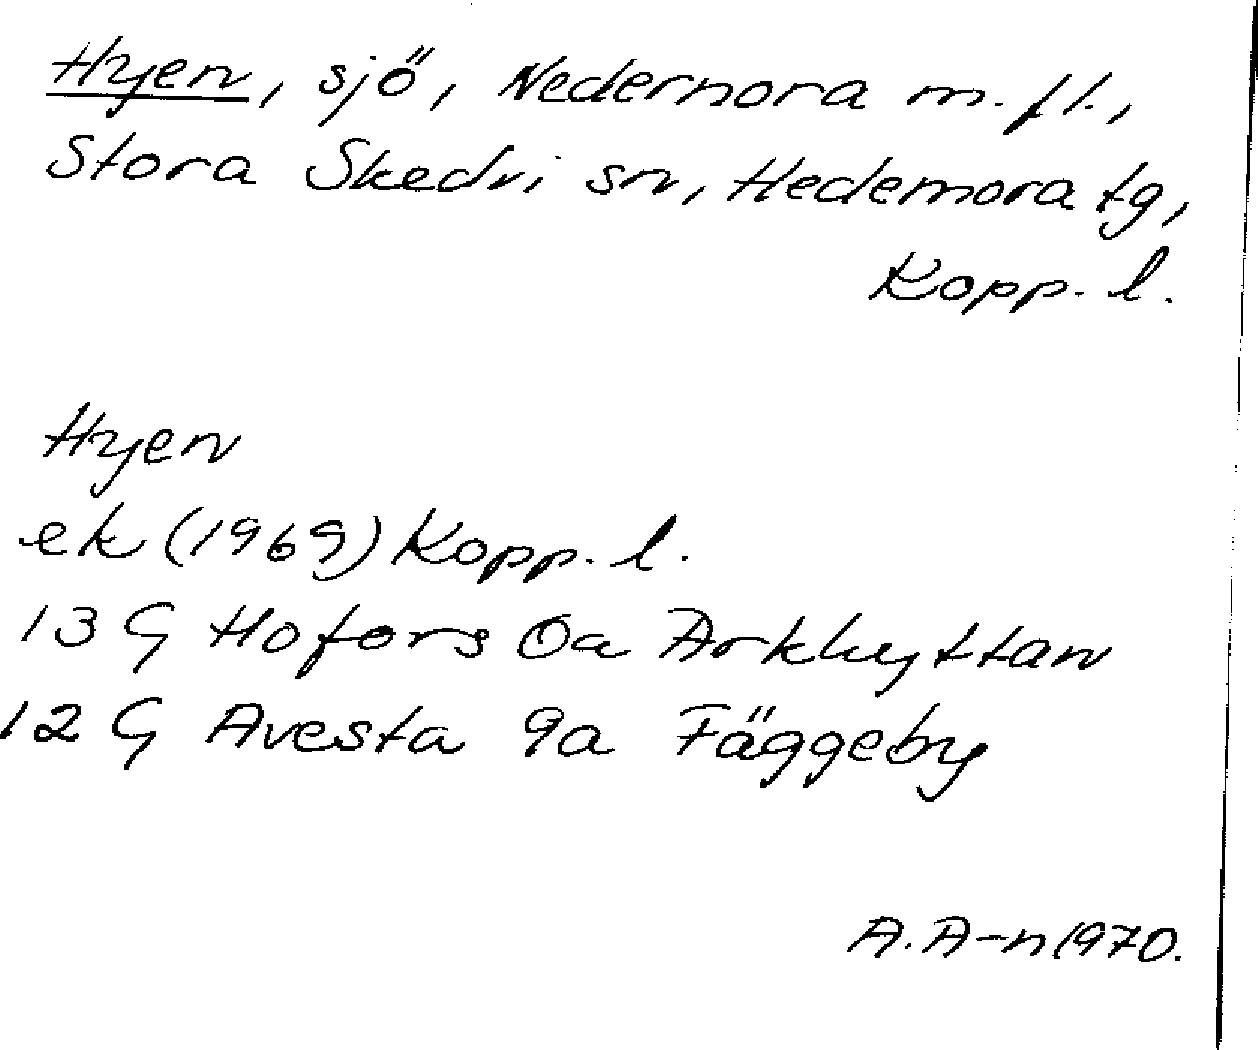 Hyen, sjö, Nedernora m. fl.,
Stora Skedvi sn, Hedemora tg,
Kopp. l.
Hyen
ek (1969) Kopp. l.
13 G Hofors 0a Arkhyttan
12 G Avesta 9a Fäggeby
A. A-n 1970.